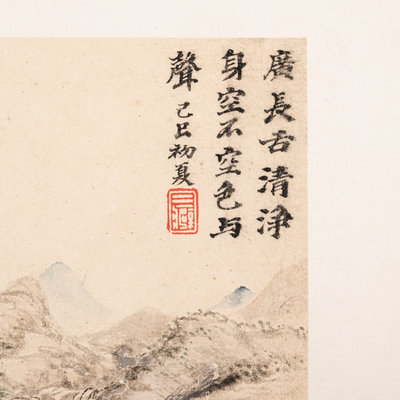 廣長舌清淨
身空不空色与
聲
己巳初夏